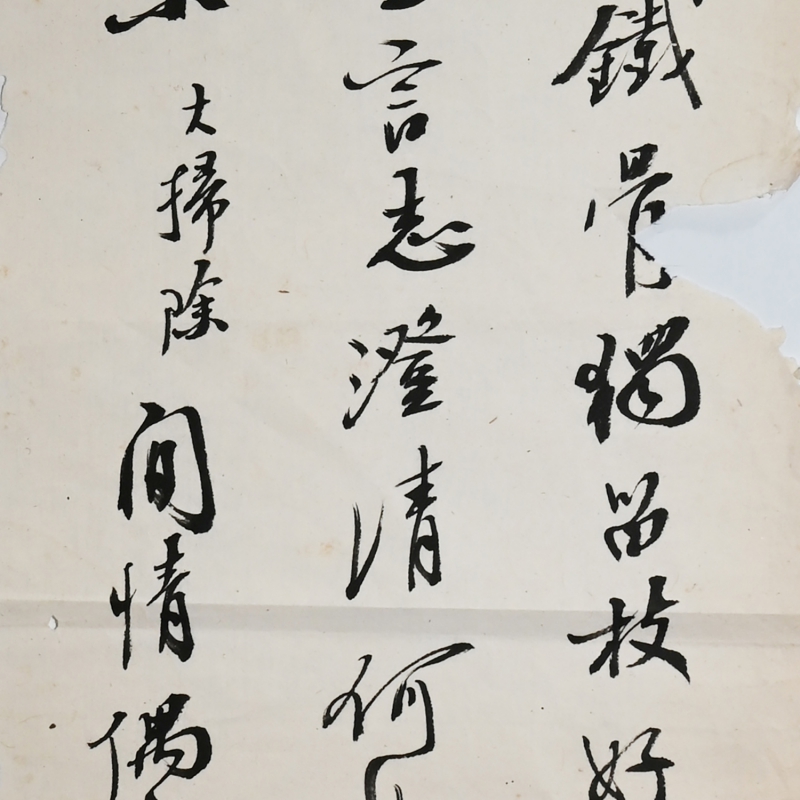 鐵骨獨留枝好
言志澄清何
大掃除間情偶